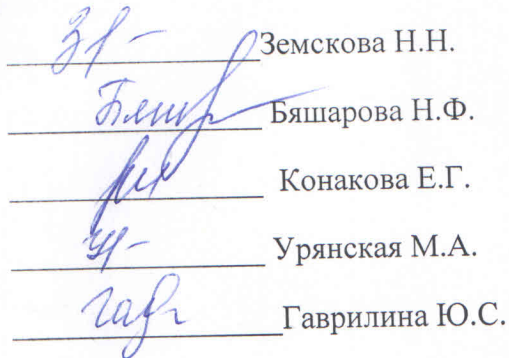 Земскова Н.Н.
Бяшарова Н.Ф.
Конакова Е.Г.
Урянская М.А.
Гаврилина Ю.С.